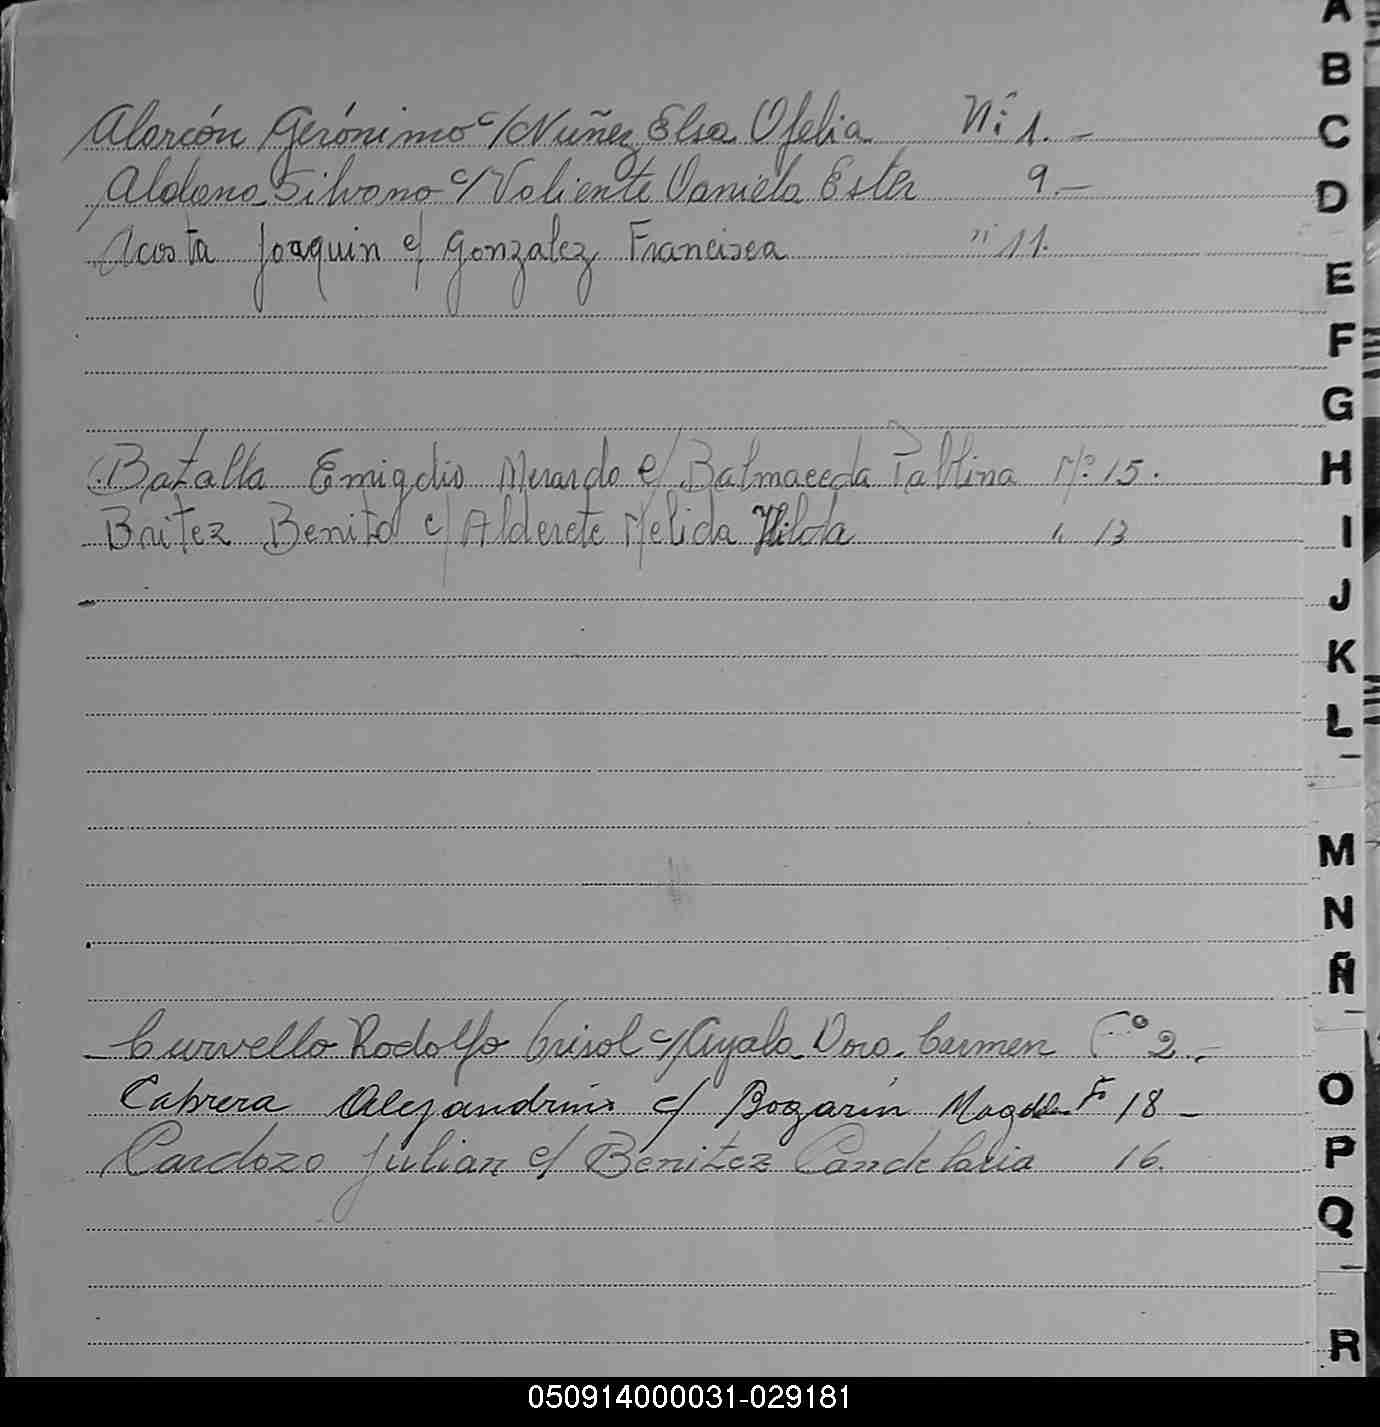 A
B
C
D
E
F
G
H
I
J
K
L
M
N
Ñ
O
P
Q
R
Alarcón Gerónimo c/ Nuñez Elsa Ofelia Nº 1.-
Aldana Silvano c/ Valiente Daniela Ester 9.-
Acosta Joaquin c/ Gonzalez Francisca " 11.
Batalla Emigdio Merardo c/ Balmaceda Pablina Nº 15.
Britez Benito c/ Alderete Melida Hilda " 13
Curvello Rodolfo Crisol c/ Ayala Dora Carmen Fº 2.-
Cabrera Alejandrino c/ Bogarin Fº 18 -
Cardozo Julian c/ Benitez Candelaria 16.
050914000031-029181